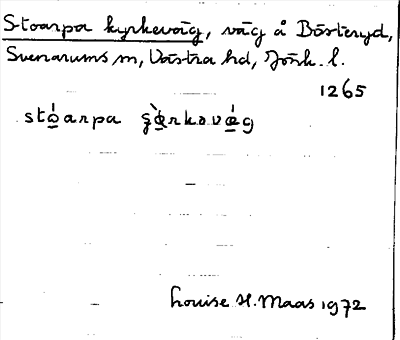 Stoarpa kyrkeväg, väg å Bösteryd,
Svenarums sn, Västra hd, Jönk. l.
1265
Louise H. Maas 1972